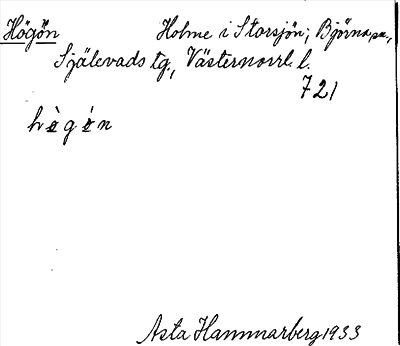 Högön Holme i Storsjön; Björna sn,
Själevads tg., Västernorrl. l.
721
h ö̀ g ö́ n
Asta Hammarberg 1933